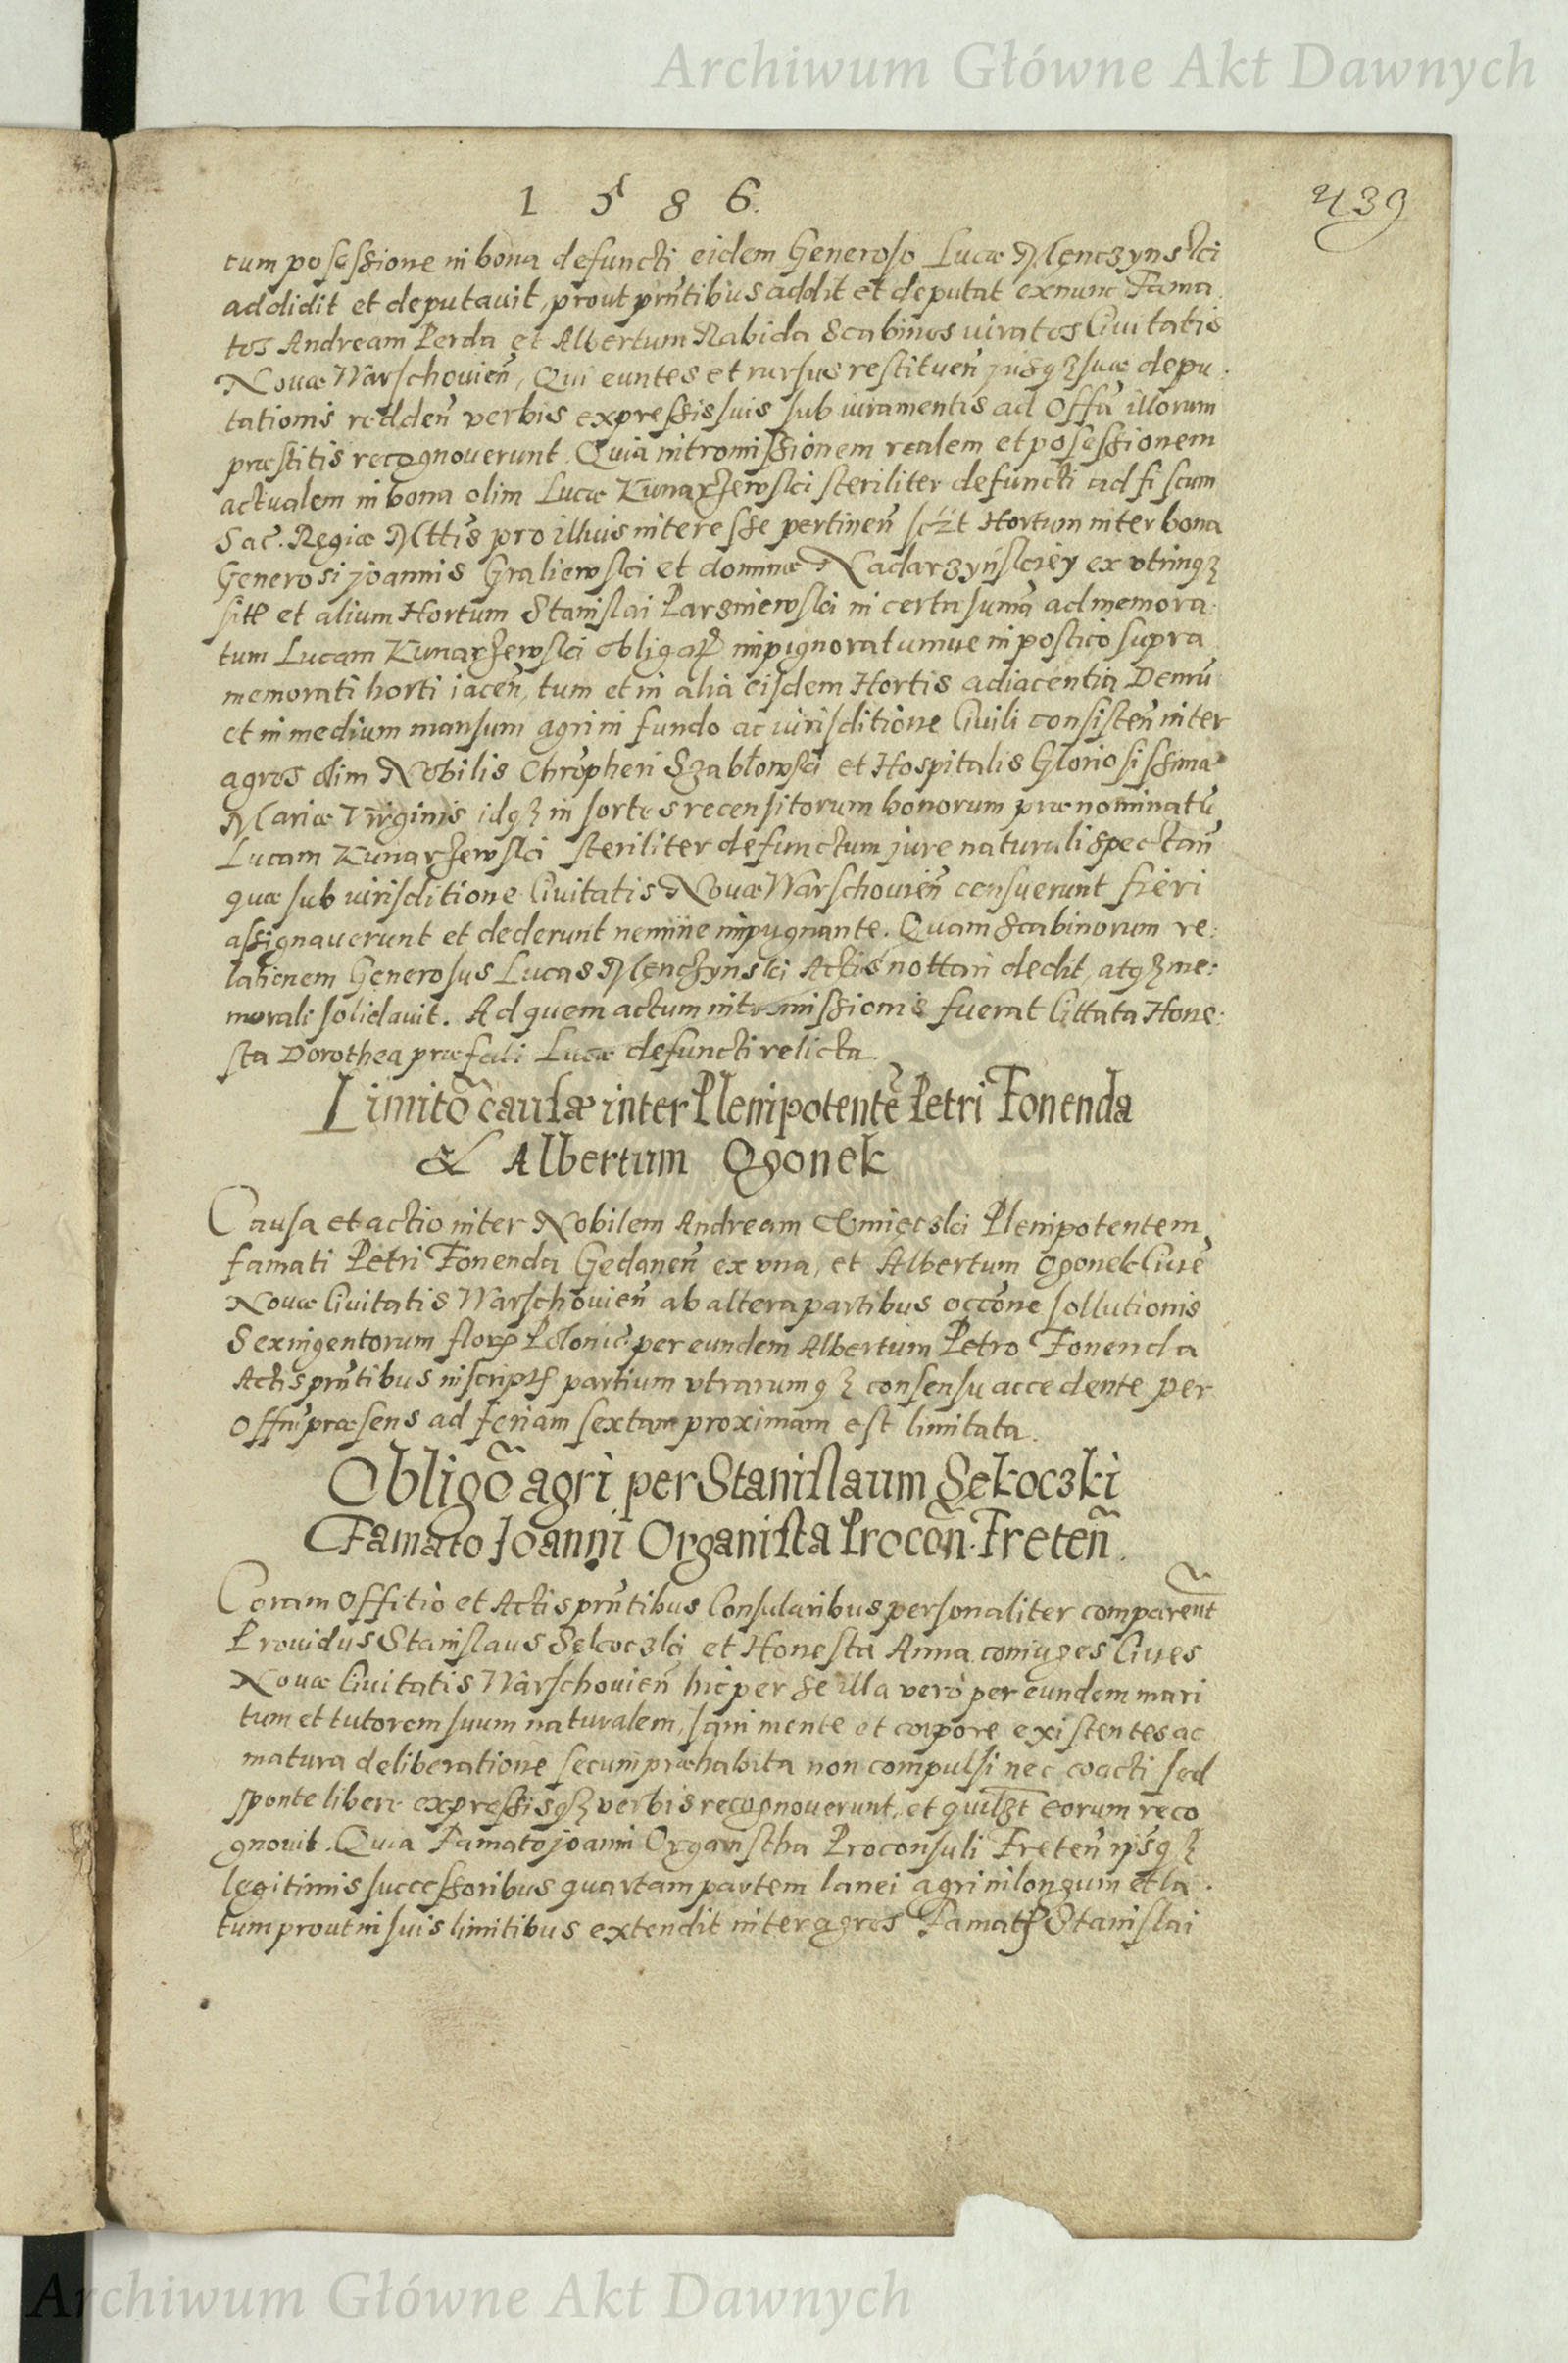 Archiwum Główne Akt Dawnych
1 5 8 6.
439
cum possessione in bona defuncti eidem Generoso Lucæ Męnczynski
addidit et deputavit, prout pn̄tibus addit et deputat ex nunc Fama
tos Andream Perda et Albertum Rabida Scabinos iuratos Ciuitatis
Nouæ Warschouien̄, Qui euntes et rursus restituen̄ jusqȝ suæ depu:
tationis redden̄ verbis expressis suis sub iuramentis ad Offm̄ illorum
præstitis recognouerunt. Quia intromissionem realem et possessionem
actualem in bona olim Lucæ Kunarzewski steriliter defuncti ad fiscum
Sac. Regiæ Mttis pro illius interesse pertinen̄ sczt Hortum inter bona
Generosi joannis Graliewski et dominæ Nadarzynskiey ex vtrinqȝ
sitt et alium Hortum Stanislai Parsniewski in certa suma ad memora
tum Lucam Kunarzewski obligat impignoratumue in postico supra
memorati horti iacen̄, tum et in alia eisdem Hortis adiacentia Demū
et in medium mansum agri in fundo ac iurisditione Ciuili consisten̄ inter
agros olim Nobilis Chrōpheri Szabłowski et Hospitalis Gloriosissima
Mariæ Virginis idqȝ in sortes recensitorum bonorum prænominatū
Lucam Kunarzewski steriliter defunctum jure naturali spectan̄
quæ sub iurisditione Ciuitatis Nouæ Warschouien̄ consuerunt fieri
assignauerunt et dederunt nemine impugnante. Quam Scabinorum re:
lationem Generosus Lucas Męnczynski Actis nottari dedit, atqȝ me:
morali solidauit. Ad quem actum intromissionis fuerat Cittata Hone:
sta Dorothea præfati Lucæ defuncti relicta.
Limitō causæ inter Plenipotentē Petri Fonenda
& Albertum Ogonek
Causa et actio inter Nobilem Andream Plenipotentem
famati Petri Fonenda Gedanen̄ ex vna, et Albertum Ogonek Ciuē
Nouæ Ciuitatis Warschouien̄ ab altera partibus occōne sollutionis
Sexingentorum flor Polonic per eundem Albertum Petro Fonenda
Actis pn̄tibus inscript partium vtrarumqȝ consensu accedente per
Offm̄ præsens ad feriam sextam proximam est limitata.
Obligō agri per Stanislaum Sękoczki
Famato Joanni Organista Procōn. Freten̄.
Coram Offitio et Actis pn̄tibus Consularibus personaliter comparent̄
Prouidus Stanislaus Sękoczki et Honesta Anna coniuges Ciues
Nouæ Ciuitatis Warschouien̄ hic per se illa verò per eundem mari
tum et tutorem suum naturalem, sani mente et corpore existentes ac
matura deliberatione secum præhabita non compulsi nec coacti sed
sponte libere expressisqȝ verbis recognouerunt, et quilȝt eorum reco
gnouit. Quia Famato joanni Organistha Proconsuli Freten̄ ijsqȝ
legitimis successoribus quartam partem lanei agri in longum et la:
tum prout in suis limitibus extendit inter agros Famat Stanislai
Archiwum Główne Akt Dawnych